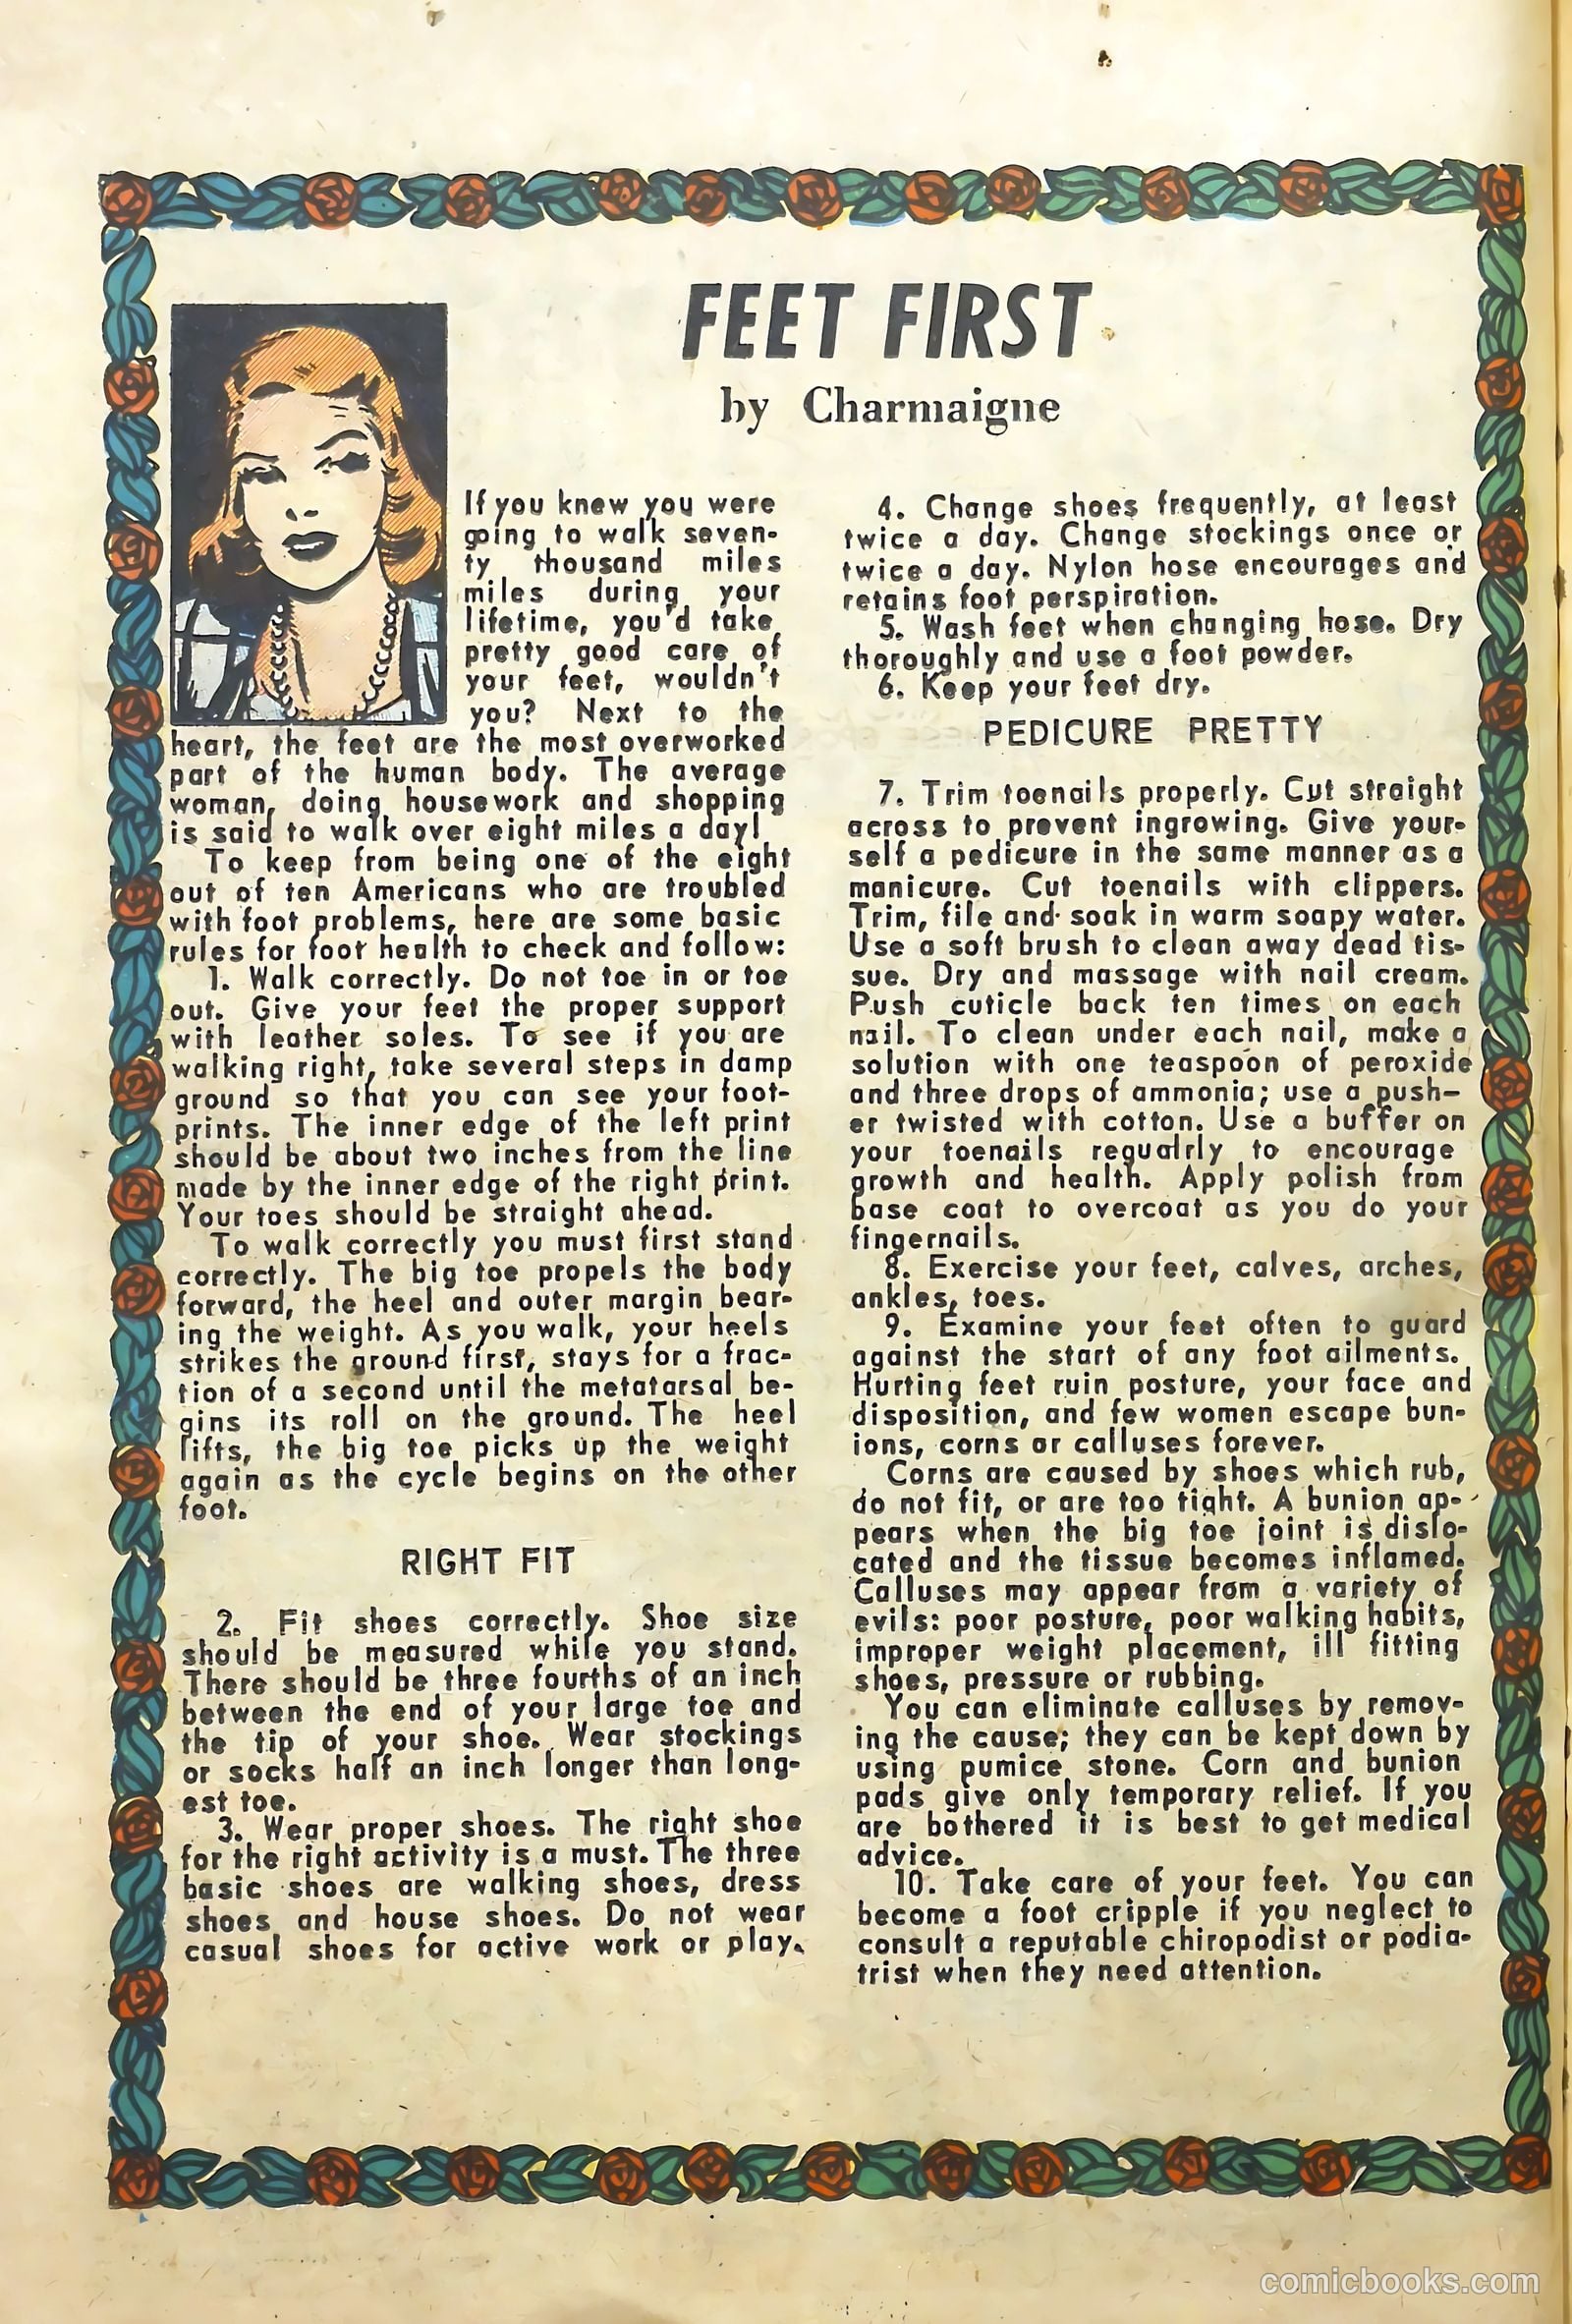 FEET FIRST
by Charmaigne
If you knew you were
going to walk seven-
ty thousand miles
miles during your
lifetime, you'd take
pretty good care of
your feet, wouldn't
you? Next to the
heart, the feet are the most overworked
part of the human body. The average
woman, doing housework and shopping
is said to walk over eight miles a day!
To keep from being one of the eight
out of ten Americans who are troubled
with foot problems, here are some basic
rules for foot health to check and follow:
1. Walk correctly. Do not toe in or toe
out. Give your feet the proper support
with leather soles. To see if you are
walking right, take several steps in damp
ground so that you can see your foot-
prints. The inner edge of the left print
should be about two inches from the line
made by the inner edge of the right print.
Your toes should be straight ahead.
To walk correctly you must first stand
correctly. The big toe propels the body
forward, the heel and outer margin bear-
ing the weight. As you walk, your heels
strikes the ground first, stays for a frac-
tion of a second until the metatarsal be-
gins its roll on the ground. The heel
lifts, the big toe picks up the weight
again as the cycle begins on the other
foot.
RIGHT FIT
2. Fit shoes correctly. Shoe size
should be measured while you stand.
There should be three fourths of an inch
between the end of your large toe and
the tip of your shoe. Wear stockings
or socks half an inch longer than long-
est toe.
3. Wear proper shoes. The right shoe
for the right activity is a must. The three
basic shoes are walking shoes, dress
shoes and house shoes. Do not wear
casual shoes for active work or play.
4. Change shoes frequently, at least
twice a day. Change stockings once or
twice a day. Nylon hose encourages and
retains foot perspiration.
5. Wash feet when changing hose. Dry
thoroughly and use a foot powder.
6. Keep your feet dry.
PEDICURE PRETTY
7. Trim toenails properly. Cut straight
across to prevent ingrowing. Give your-
self a pedicure in the same manner as a
manicure. Cut toenails with clippers.
Trim, file and soak in warm soapy water.
Use a soft brush to clean away dead tis-
sue. Dry and massage with nail cream.
Push cuticle back ten times on each
nail. To clean under each nail, make a
solution with one teaspoon of peroxide
and three drops of ammonia; use a push-
er twisted with cotton. Use a buffer on
your toenails regualrly to encourage
growth and health. Apply polish from
base coat to overcoat as you do your
fingernails.
8. Exercise your feet, calves, arches,
ankles, toes.
9. Examine your feet often to guard
against the start of any foot ailments.
Hurting feet ruin posture, your face and
disposition, and few women escape bun-
ions, corns or calluses forever.
Corns are caused by shoes which rub,
do not fit, or are too tight. A bunion ap-
pears when the big toe joint is dislo-
cated and the tissue becomes inflamed.
Calluses may appear from a variety of
evils: poor posture, poor walking habits,
improper weight placement, ill fitting
shoes, pressure or rubbing.
You can eliminate calluses by remov-
ing the cause; they can be kept down by
using pumice stone. Corn and bunion
pads give only temporary relief. If you
are bothered it is best to get medical
advice.
10. Take care of your feet. You can
become a foot cripple if you neglect to
consult a reputable chiropodist or podia-
trist when they need attention.
comicbooks.com